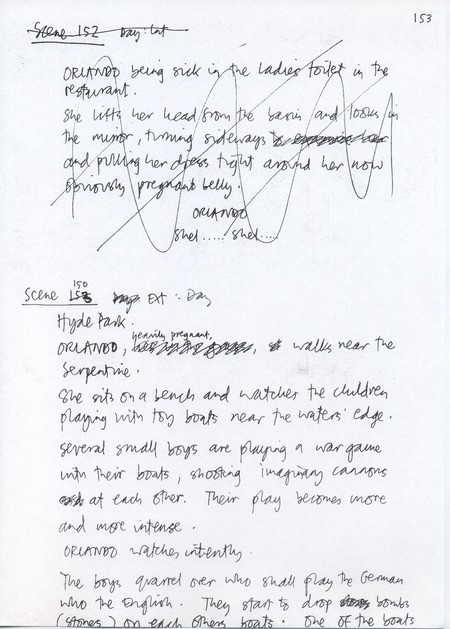 153
Scene 152 Day: Int
ORLANDO being sick in the ladies toilet in the
restaurant.
She lifts her head from the basin and looks in
the mirror, turning sideways
and pulling her dress tight around her now
obviously pregnant belly.
ORLANDO
Shel ..... Shel .....
Scene 150 Ext : Day
Hyde Park.
heavily pregnant,
ORLANDO, walks near the
Serpentine.
She sits on a bench and watches the children
playing with toy boats near the waters' edge.
Several small boys are playing a war game
with their boats, shooting imaginary cannons
at each other. Their play becomes more
and more intense.
ORLANDO watches intently.
The boys quarrel over who shall play the German
who the English. They start to drop bombs
(stones) on each others boats. One of the boats